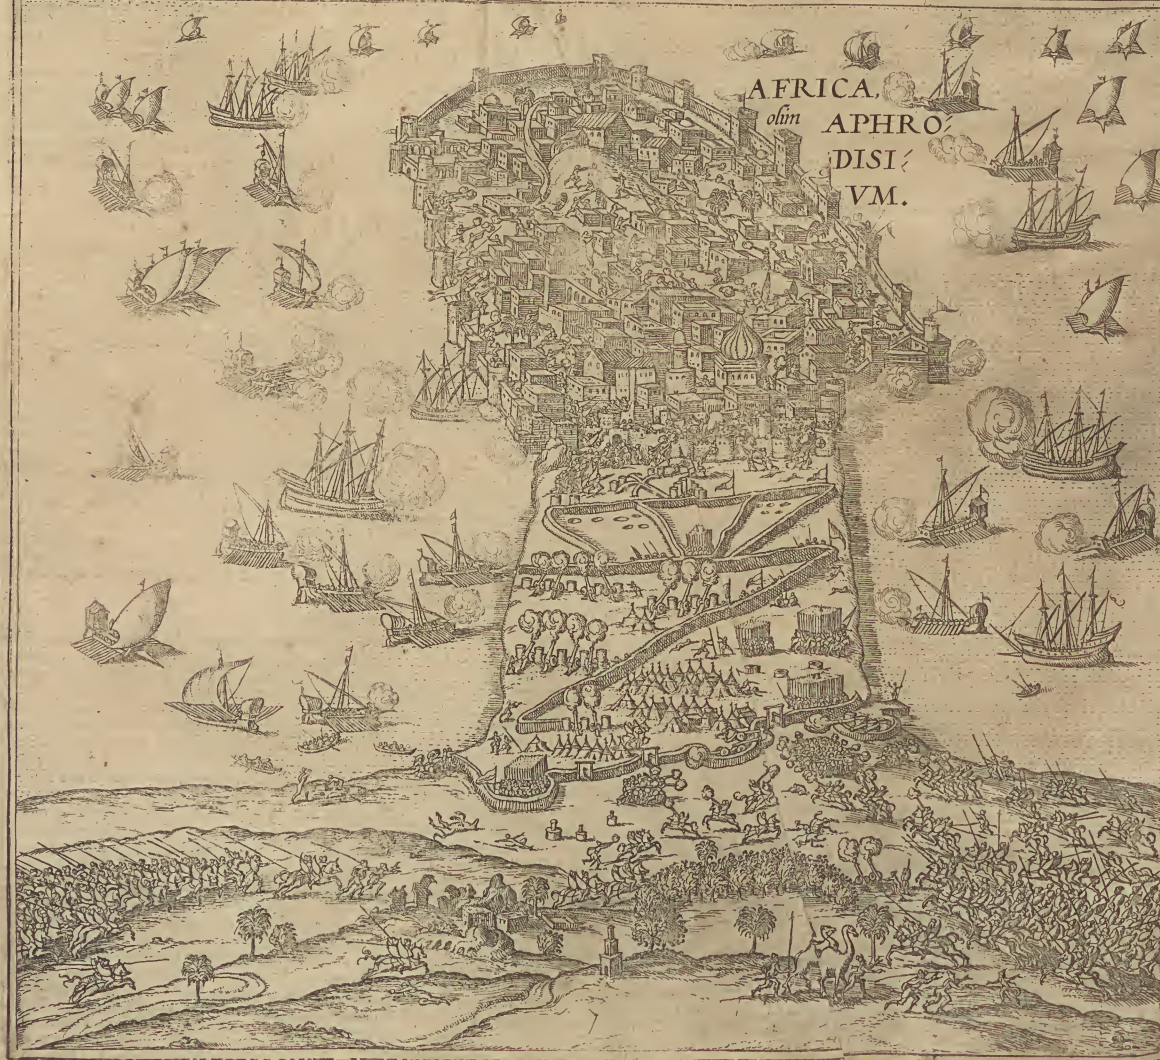 AFRICA,
olim APHRO⸗
DISI⸗
VM.